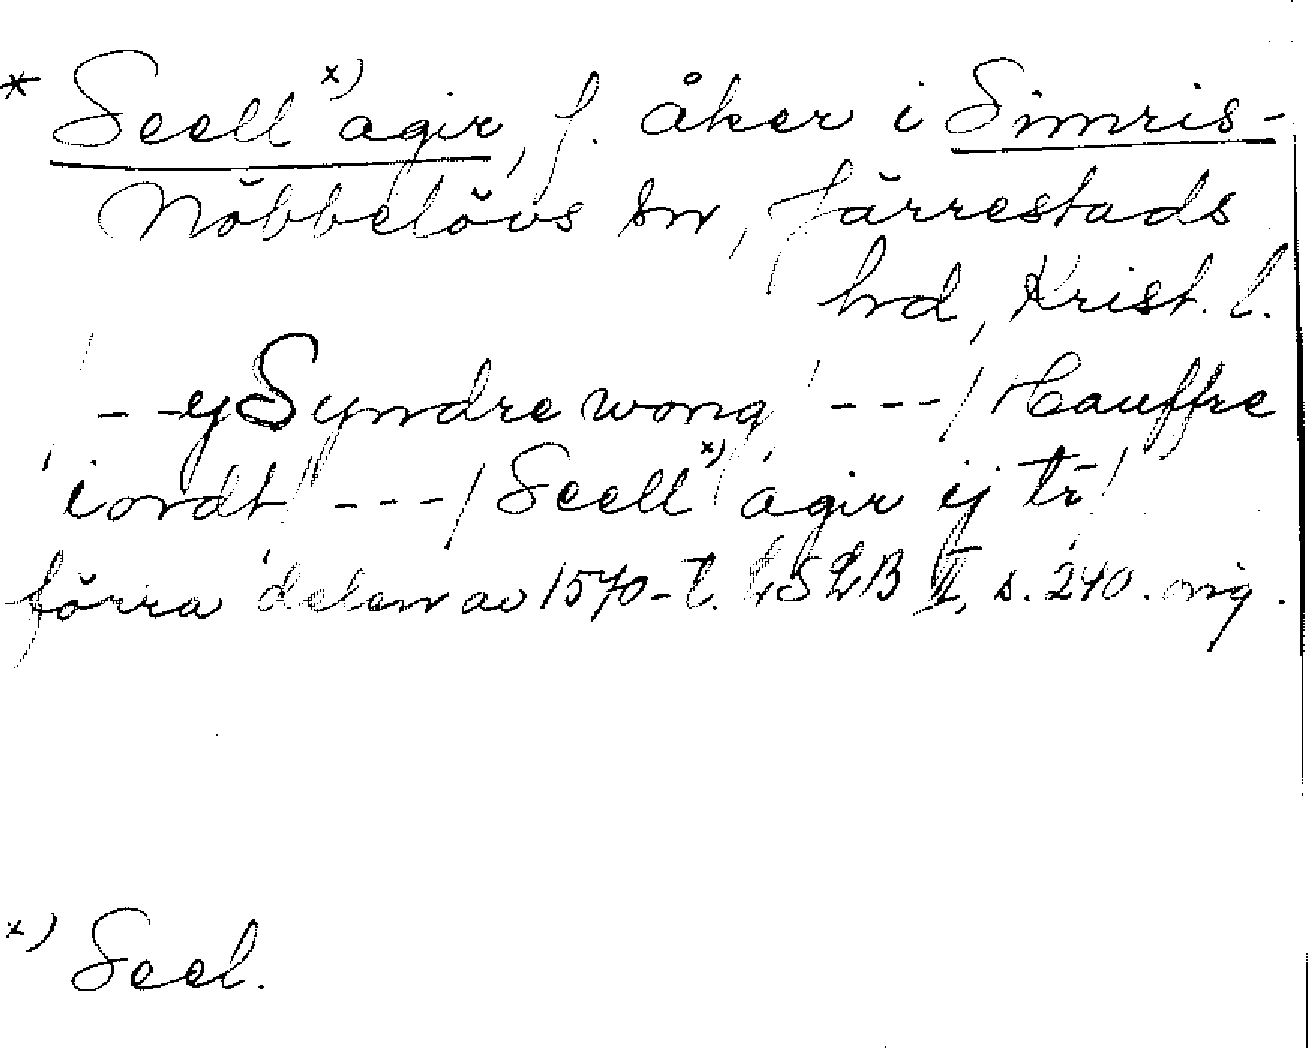 * Seell x) agir, f. åker i Simris-
Nöbbelövs sn, Järrestads
hrd, Krist. l.
- - ey Syndre wong - - - / Hauffre
iordt / - - - / Seell x) agir ij tr̄ /
förra delen av 1570-t. LSLB II, s. 240. orig.
x) Seel.